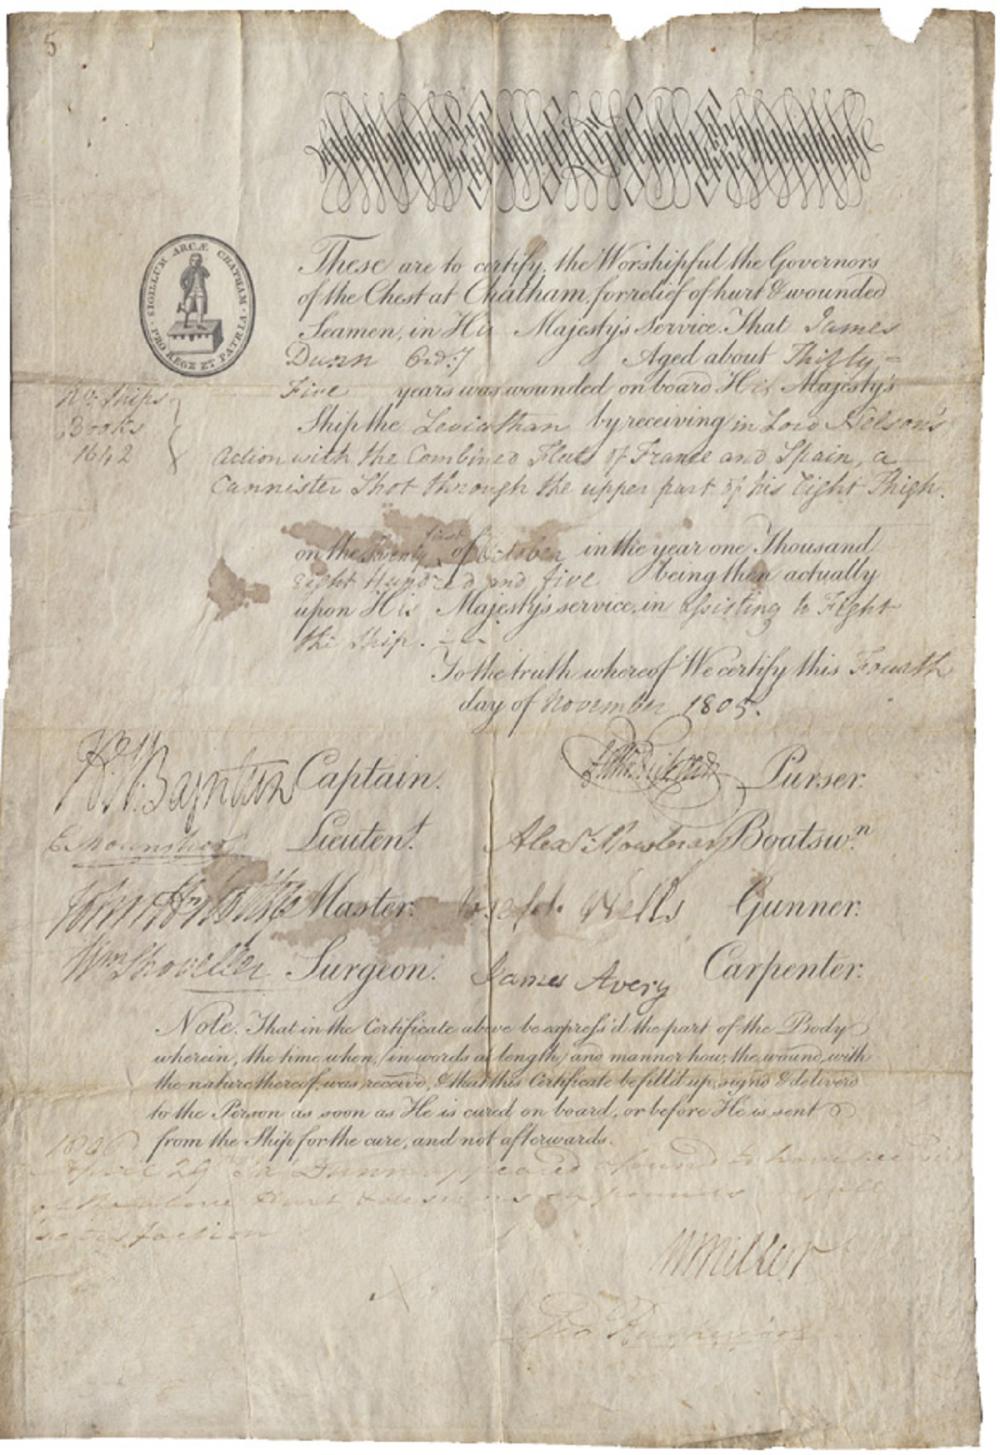 5
SIGILLUM ARCÆ CHATHAM · PRO REGE ET PATRIA ·
These are to certify, the Worshipful the Governors
of the Chest at Chatham, for relief of hurt & wounded
Seamen, in His Majesty's Service. That James
Dunn Ord:y Aged about Thirty=
Five years was wounded on board His Majesty's
No. Ships
Books
1642
Ship the Leviathan by receiving in Lord Nelson's
action with the Combined Fleets of France and Spain, a
Cannister Shot through the upper part of his Right Thigh.
on the twenty first of October in the year one Thousand
eight Hundred and five being then actually
upon His Majesty's service, in assisting to Fight
the Ship.
To the truth whereof We certify this Fourth
day of November 1805.
H. W. Bayntun Captain. Purser.
E Mounsher Lieuten.t Alex.r Boatsw.n
Master. Joseph Wells Gunner.
Wm Shoveller Surgeon. James Avery Carpenter.
Note. That in the Certificate above be express'd the part of the Body
wherein, the time when, (in words at length) and manner how, the wound, with
the nature thereof, was received, & that this Certificate be fill'd up, sign'd & deliver'd
to the Person as soon as He is cured on board, or before He is sent
from the Ship for the cure, and not afterwards.
1806
April 29 Dunn appeared & found to have
of Hurt
satisfaction
W Miller